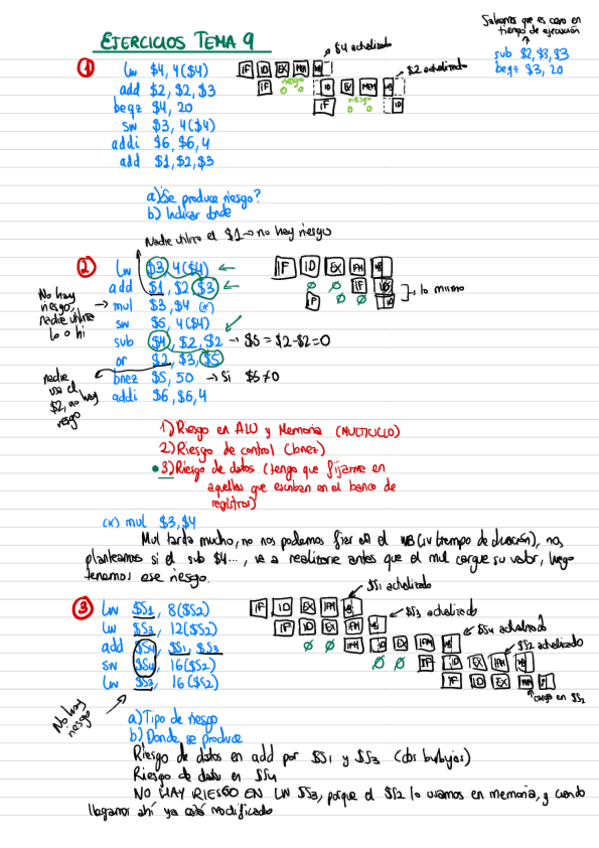 EJERCICIOS TEMA 9
Sabemos que es cero en
tiempo de ejecución
sub $2,$3,$3
beqz $3, 20
1
lw $4, 4($4)
add $2, $2, $3
beqz $4, 20
sw $3, 4($4)
addi $6, $6, 4
add $1, $2, $3
IF ID EX MEM WB
$4 actualizado
IF riesgo ID EX MEM WB
$2 actualizado
IF riesgo ID
a) Se produce riesgo?
b) Indicar donde
Nadie utiliza el $1 → no hay riesgo
2
lw $3, 4($4)
add $1, $2 $3
mul $3, $4 (*)
sw $6, 4($4)
sub $4, $2, $2 → $5 = $2-$2=0
or $2, $3, $5
bnez $5, 50 → Si $5≠0
addi $6, $6, 4
No hay
riesgo,
nadie utiliza
lo o hi
nadie
usa el
$2, no hay
riesgo
IF ID EX MEM WB
IF ID
IF ID
lo mismo
1) Riesgo en ALU y Memoria (MULTICICLO)
2) Riesgo de control (bnez)
3) Riesgo de datos (tengo que fijarme en
aquellas que escriban en el banco de
registros)
(*) mul $3, $4
Mul tarda mucho, no nos podemos fiar en el WB (su tiempo de duración), nos
planteamos si el sub $4..., va a realizarse antes que el mul cargue su valor, luego
tenemos ese riesgo.
3
lw $S1, 8($S2)
lw $S3, 12($S2)
add $S4, $S1, $S3
sw $S4, 16($S2)
lw $S2, 16($S2)
No hay
riesgo
IF ID EX MEM WB
$S1 actualizado
IF ID EX MEM WB
$S3 actualizado
IF ID EX MEM WB
$S4 actualizado
IF ID EX MEM WB
$S2 actualizado
IF ID EX MEM
cargo en $S2
a) Tipo de riesgo
b) Donde se produce
Riesgo de datos en add por $S1 y $S3 (dos burbujas)
Riesgo de datos en $S4
NO HAY RIESGO EN LW $S3, porque el $S2 lo usamos en memoria, y cuando
llegamos ahí ya está modificado